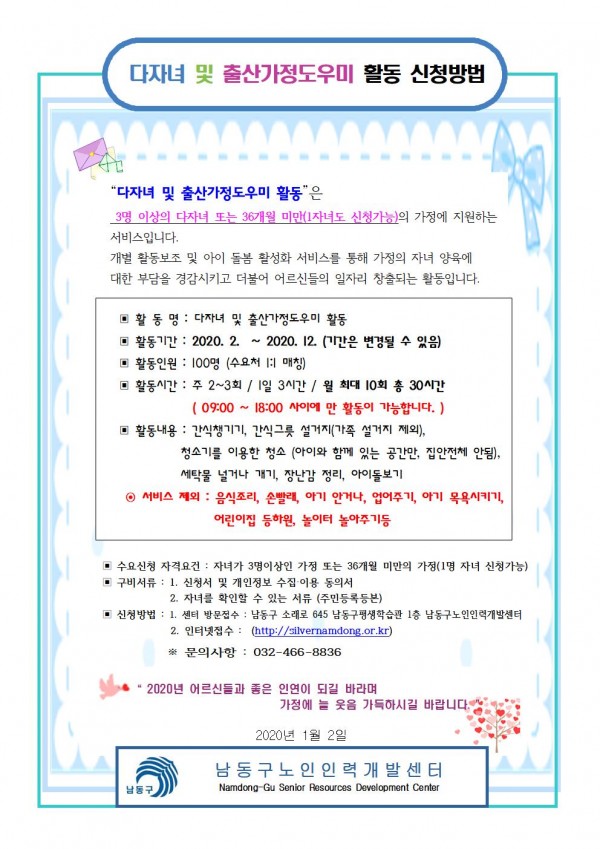 다자녀 및 출산가정도우미 활동 신청방법
"다자녀 및 출산가정도우미 활동"은
3명 이상의 다자녀 또는 36개월 미만(1자녀도 신청가능)의 가정에 지원하는
서비스입니다.
개별 활동보조 및 아이 돌봄 활성화 서비스를 통해 가정의 자녀 양육에
대한 부담을 경감시키고 더불어 어르신들의 일자리 창출되는 활동입니다.
▣ 활 동 명 : 다자녀 및 출산가정도우미 활동
▣ 활동기간 : 2020. 2. ~ 2020. 12. (기간은 변경될 수 있음)
▣ 활동인원 : 100명 (수요처 1:1 매칭)
▣ 활동시간 : 주 2~3회 / 1일 3시간 / 월 최대 10회 총 30시간
( 09:00 ~ 18:00 사이에 만 활동이 가능합니다. )
▣ 활동내용 : 간식챙기기, 간식그릇 설거지(가족 설거지 제외),
청소기를 이용한 청소 (아이와 함께 있는 공간만, 집안전체 안됨),
세탁물 널거나 개기, 장난감 정리, 아이돌보기
◉ 서비스 제외 : 음식조리, 손빨래, 아기 안거나, 업어주기, 아기 목욕시키기,
어린이집 등하원, 놀이터 놀아주기등
▣ 수요신청 자격요건 : 자녀가 3명이상인 가정 또는 36개월 미만의 가정(1명 자녀 신청가능)
▣ 구비서류 : 1. 신청서 및 개인정보 수집·이용 동의서
2. 자녀를 확인할 수 있는 서류 (주민등록등본)
▣ 신청방법 : 1. 센터 방문접수 : 남동구 소래로 645 남동구평생학습관 1층 남동구노인인력개발센터
2. 인터넷접수 : (http://silvernamdong.or.kr)
※ 문의사항 : 032-466-8836
" 2020년 어르신들과 좋은 인연이 되길 바라며
가정에 늘 웃음 가득하시길 바랍니다. "
2020년 1월 2일
남동구
남동구노인인력개발센터
Namdong-Gu Senior Resources Development Center